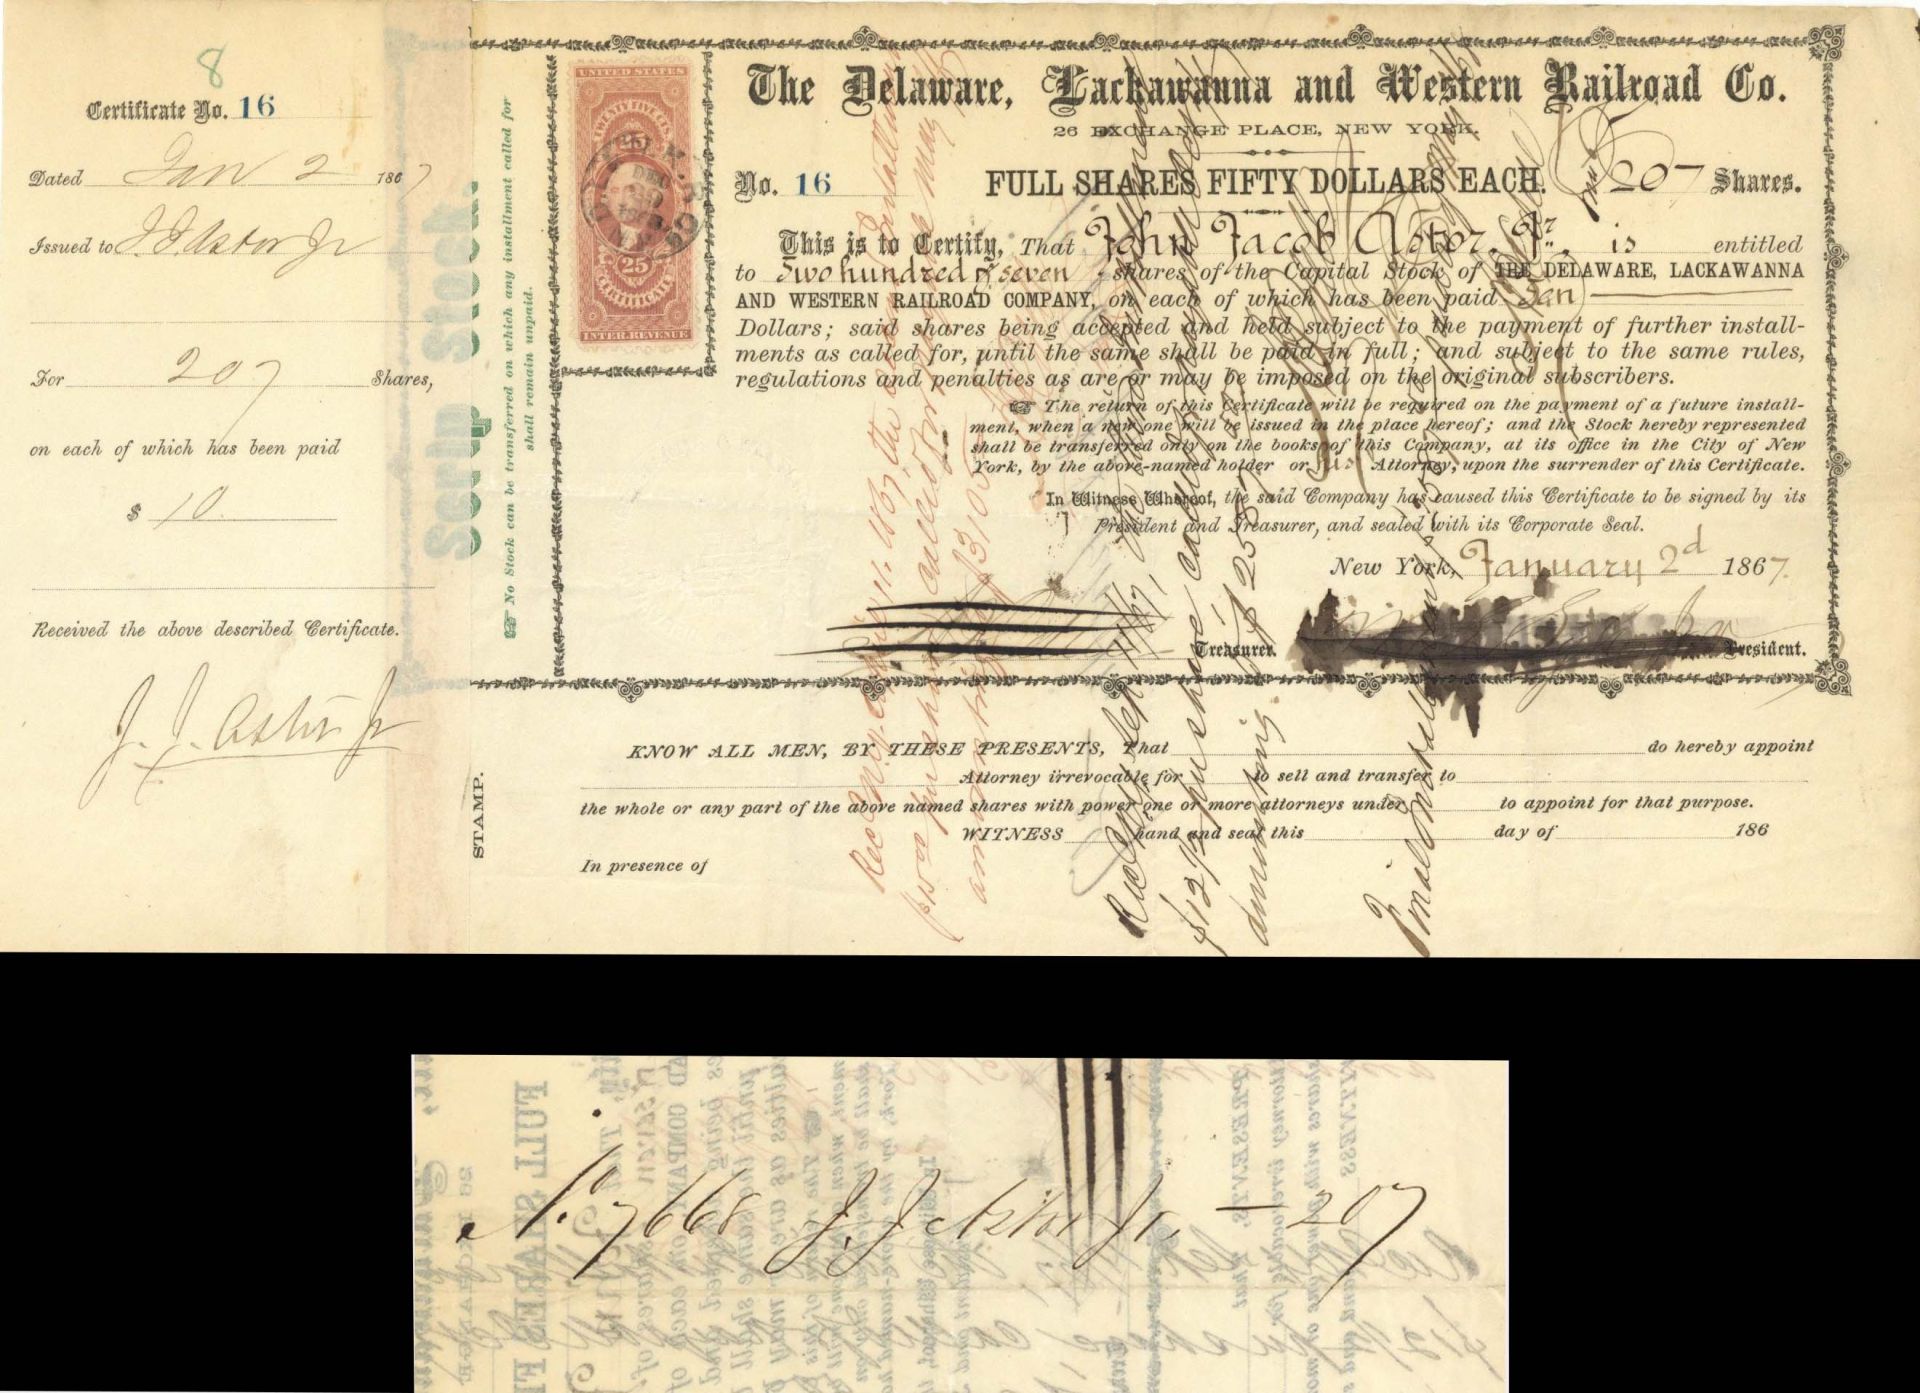 8
Certificate No. 16
Dated Jan 2 1867
Issued to J. J. Astor Jr
For 207 Shares,
on each of which has been paid
$ 10
Received the above described Certificate.
J. J. Astor Jr
Scrip Stock.
☞ No Stock can be transferred on which any installment called for
shall remain unpaid.
STAMP.
UNITED STATES
TWENTY FIVE CENTS
25
25
CERTIFICATE
INTER. REVENUE
The Delaware, Lackawanna and Western Railroad Co.
26 EXCHANGE PLACE, NEW YORK.
No. 16 FULL SHARES FIFTY DOLLARS EACH. 207 Shares.
This is to Certify, That John Jacob Astor, Jr. is entitled
to Two hundred & seven shares of the Capital Stock of THE DELAWARE, LACKAWANNA
AND WESTERN RAILROAD COMPANY, on each of which has been paid Ten
Dollars; said shares being accepted and held subject to the payment of further install-
ments as called for, until the same shall be paid in full; and subject to the same rules,
regulations and penalties as are or may be imposed on the original subscribers.
☞ The return of this Certificate will be required on the payment of a future install-
ment, when a new one will be issued in the place hereof; and the Stock hereby represented
shall be transferred only on the books of this Company, at its office in the City of New
York, by the above-named holder or his Attorney, upon the surrender of this Certificate.
In Witness Whereof, the said Company has caused this Certificate to be signed by its
President and Treasurer, and sealed with its Corporate Seal.
New York, January 2d 1867.
Treasurer. President.
KNOW ALL MEN, BY THESE PRESENTS, That do hereby appoint
Attorney irrevocable for to sell and transfer to
the whole or any part of the above named shares with power one or more attorneys under to appoint for that purpose.
WITNESS hand and seal this day of 186
In presence of
No. 7668 J. J. Astor Jr. — 207